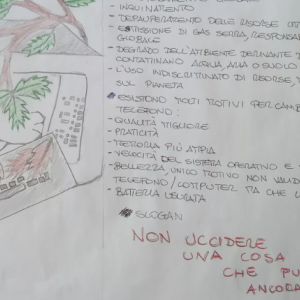 - INQUINAMENTO
- DEPAUPERAMENTO DELLE RISORSE
- EMISSIONE DI GAS SERRA, RESPONSA
GLOBALE
- DEGRADO DELL'AMBIENTE DERIVANTE
CONTAMINANO ACQUA, ARIA O SUOLO
- L'USO INDISCRIMINATO DI RISORSE,
SUL PIANETA
ESISTONO MOLTI MOTIVI PER CAMB
TELEFONO:
- QUALITÀ MIGLIORE
- PRATICITÀ
- MEMORIA PIÙ AMPIA
- VELOCITÀ DEL SISTEMA OPERATIVO E
- BELLEZZA, UNICO MOTIVO NON VALID
TELEFONO/COMPUTER MA CHE
- BATTERIA USURATA
SLOGAN
NON UCCIDERE
UNA COSA
CHE PU
ANCORA